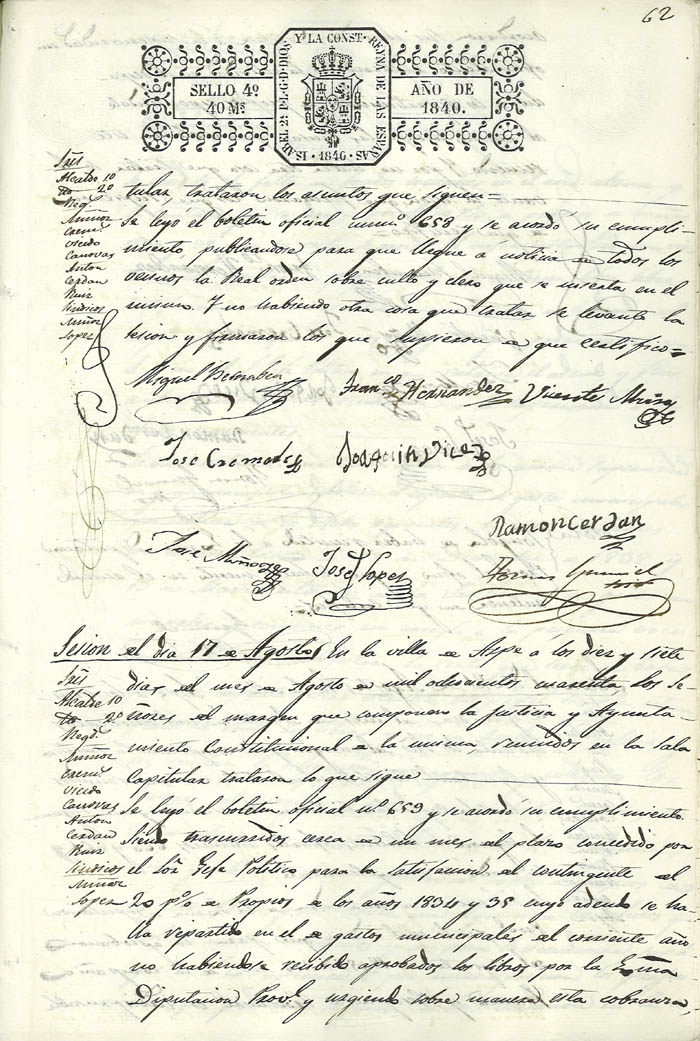 62
ISABEL 2ª P.L.G.D.DIOS Y LA CONST. REYNA DE LAS ESPAÑAS
· 1840 ·
SELLO 4º
40 Mˢ
AÑO DE
1840.
Sñes
Alcalde 1º
2º
Regˢ
Muñoz
Cremˢ
Oviedo
Canovas
Anton
Cerdan
Ruiz
Sindicos
Muñoz
Lopez
tular, trataron los asuntos que siguen=
Se leyó el boletin oficial numº 658 y se acordó su cumpli-
miento publicandose para que llegue a noticia de todos los
vecinos la Real orden sobre culto y clero que se inserta en el
mismo. Y no habiendo otra cosa que tratar se levantó la
sesion y firmaron los que supieron de que certifico=
Miguel
Franco Hernandez
Vicente Muñoz
Jose Cremades
Joaquin Vicedo
Ramon Cerdan
Jose Muñoz
Josef Lopez
Sesion del dia 17 de Agosto
En la villa de Aspe á los diez y siete
dias del mes de Agosto de mil ochocientos cuarenta, los Se-
ñores del margen que componen la Justicia y Ayunta-
miento Constitucional de la misma, reunidos en la sala
Capitular trataron lo que sigue
Sñes
Alcalde 1º
2º
Regˢ
Muñoz
Cremˢ
Oviedo
Canovas
Anton
Cerdan
Ruiz
Sindicos
Muñoz
Lopez
Se leyó el boletin oficial nº 659 y se acordó su cumplimiento.
Siendo trascurridos cerca de un mes del plazo concedido por
el Sor Gefe Politico para la satisfacion del contingente del
20 p% de Propios de los años 1834 y 35 cuyo adeudo se ha-
lla repartido en el de gastos municipales del corriente año
no habiendose recibido aprobados los libros por la Exma
Diputacion Provˡ y urgiendo sobre manera esta cobranza,